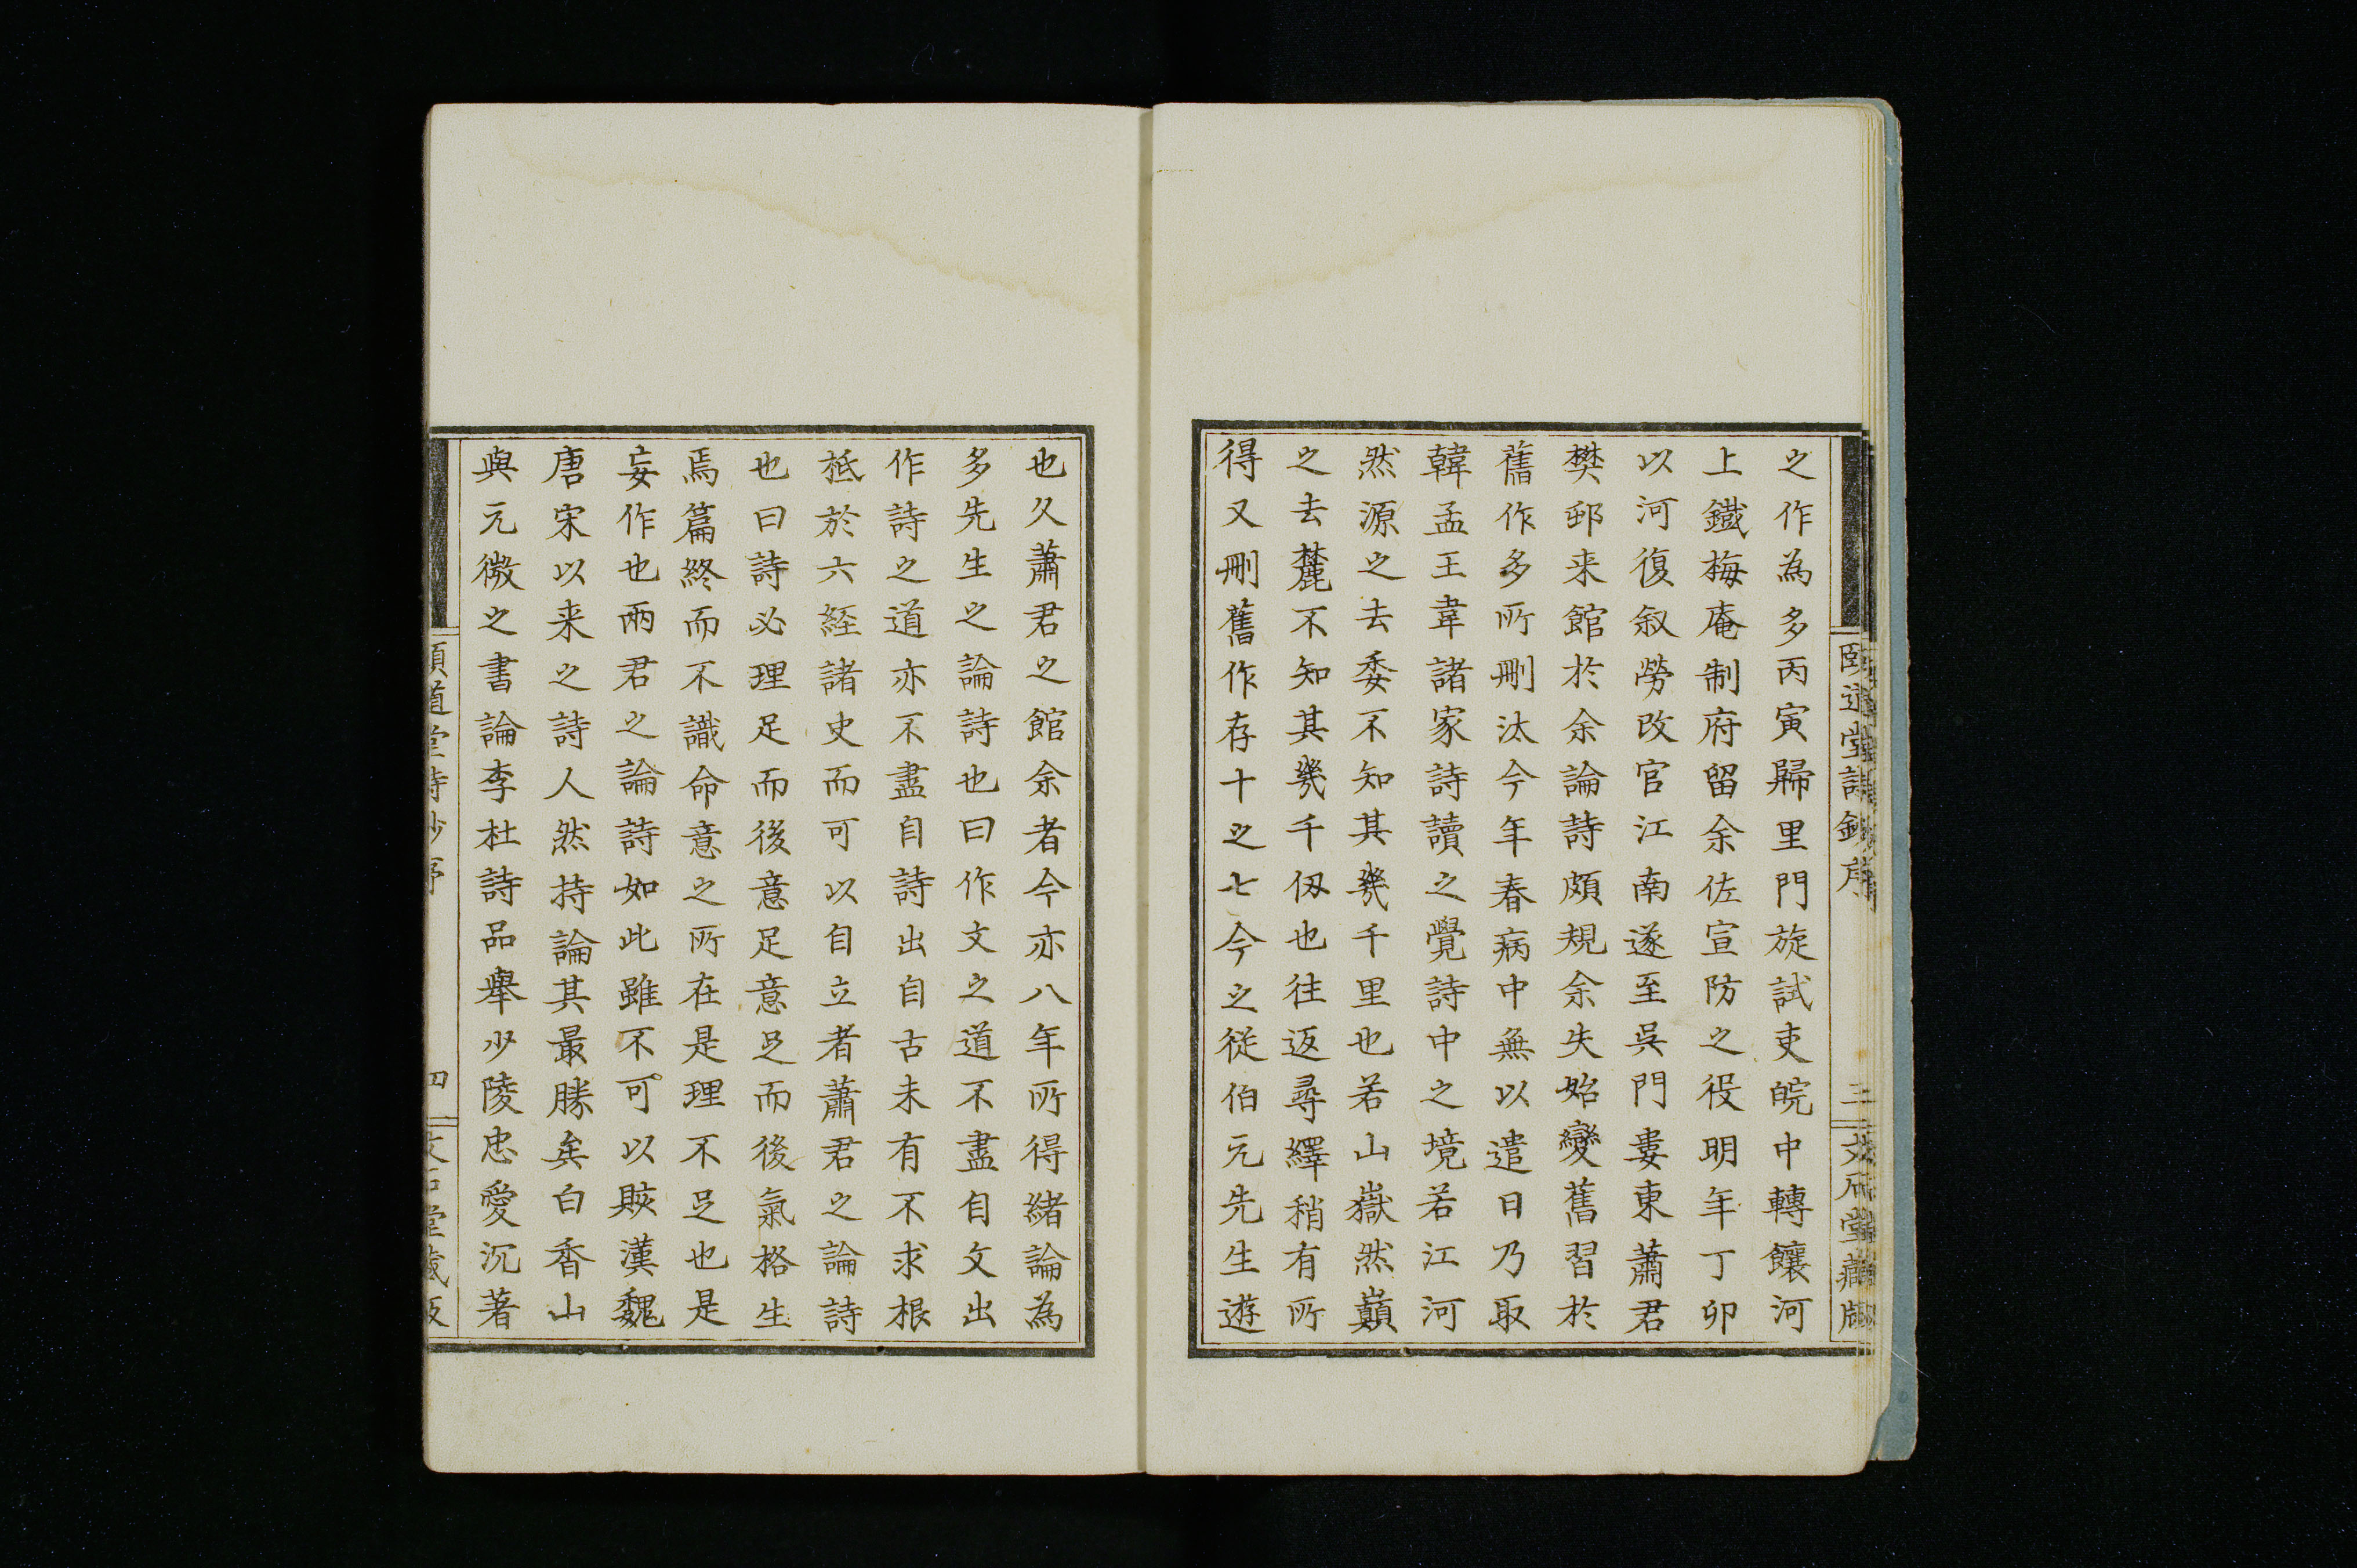 頤道堂詩鈔序
三
文石堂藏版
之作為多丙寅歸里門旋試吏皖中轉饟河
上鐵梅庵制府留余佐宣防之役明年丁卯
以河復叙勞改官江南遂至吳門婁東蕭君
樊邨来館於余論詩頗規余失始變舊習於
舊作多所刪汰今年春病中無以遣日乃取
韓孟王韋諸家詩讀之覺詩中之境若江河
然源之去委不知其幾千里也若山嶽然巔
之去麓不知其幾千仭也往返尋繹稍有所
得又刪舊作存十之七今之從伯元先生遊
也久蕭君之館余者今亦八年所得緒論為
多先生之論詩也曰作文之道不盡自文出
作詩之道亦不盡自詩出自古未有不求根
柢於六經諸史而可以自立者蕭君之論詩
也曰詩必理足而後意足意足而後氣格生
焉篇終而不識命意之所在是理不足也是
妄作也兩君之論詩如此雖不可以賅漢魏
唐宋以来之詩人然持論其最勝矣白香山
與元微之書論李杜詩品舉少陵忠愛沉著
頤道堂詩鈔序
四
文石堂藏版